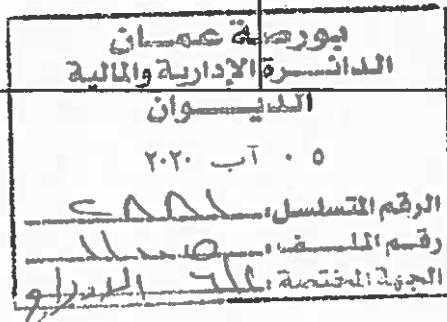 بورصة عمان
الدائرة الإدارية والمالية
الديوان
٠٥ آب ٢٠٢٠
الرقم المتسلسل:
رقم الملف:
الجهة المختصة: